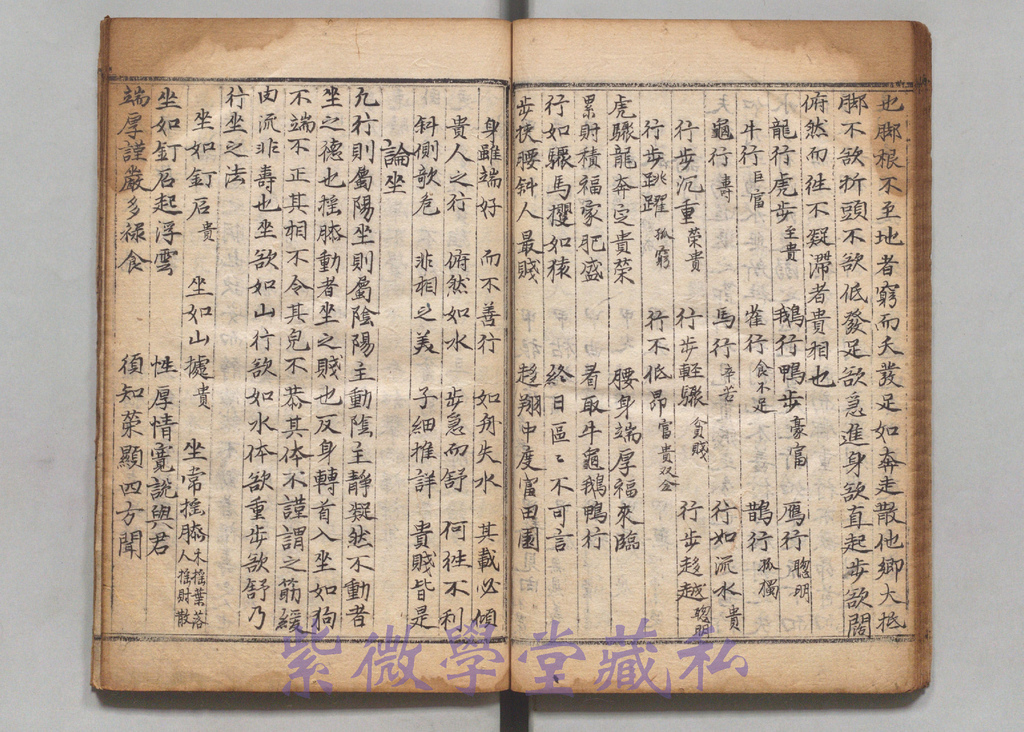 也脚根不至地者窮而夭發足如奔走散他鄉大抵
脚不欲折頭不欲低發足欲急進身欲直起步欲闊
俯然而往不凝滯者貴相也
龍行虎步至貴 鵝行鴨步豪富 鴈行聰明
牛行巨富 雀行食不足 鵲行孤獨
龜行壽 馬行辛苦 行如流水貴
行步沉重榮貴 行步輕驟貧賤 行步趍越聰明
行步跳躍孤窮 行不低昂富貴双全
虎驟龍奔定貴榮 腰身端厚福來臨
累財積福家肥盛 看取牛龜鵝鴨行
行如驟馬攖如猿 終日區〻不可言
步挾腰斜人最賤 趍翔中度富田園
身雖端好 而不善行 如舟失水 其載必傾
貴人之行 俯然如水 步急而舒 何往不利
斜側欹危 非相之美 子細推詳 貴賤皆是
論坐
凢行則屬陽坐則屬陰陽主動陰主靜凝然不動者
坐之德也搖膝動者坐之賤也反身轉首入坐如狗
不端不正其相不令其皃不恭其体不謹謂之筋緩
肉流非壽也坐欲如山行欲如水体欲重步欲舒乃
行坐之法
坐如釘石貴 坐如山據貴 坐常搖膝木搖葉落人搖財散
坐如釘石起浮雲 性厚情寬說與君
端厚謹嚴多祿食 須知榮顯四方聞
紫微學堂藏私